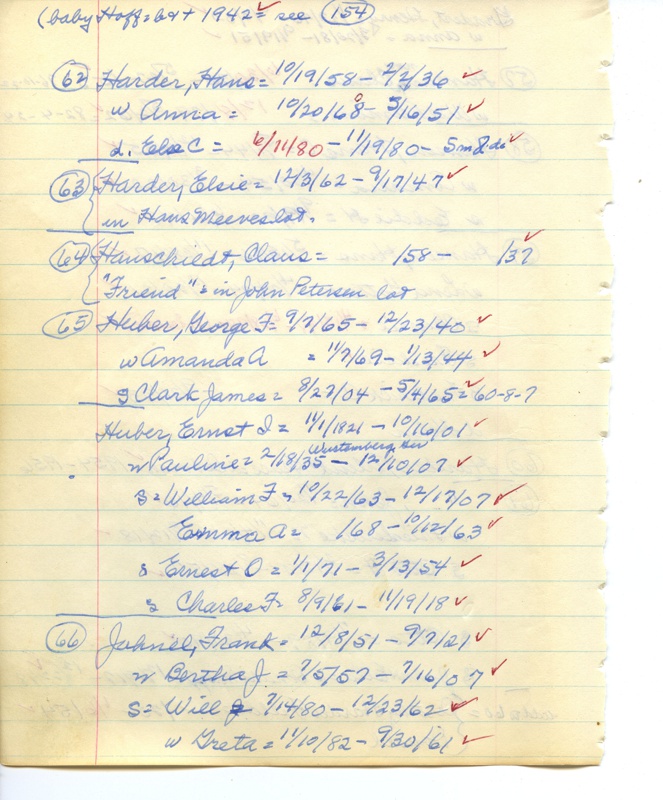 (baby Hoff = bot + 1942 = see 154
62 Harder, Hans = 10/19/58 - 2/2/36 ✓
w Anna = 10/20/68 - 5/16/51 ✓
d. Else C = 6/11/80 - 11/19/80 - 5m 8 da ✓
63 Harder, Elsie = 12/3/62 - 9/17/47 ✓
in Hans Meeves lot.
64 Hauschiedt, Claus = /58 - /37 ✓
"Friend" = in John Petersen lot
65 Huber, George F = 9/7/65 - 12/23/40 ✓
w Amanda A = 11/7/69 - 1/13/44 ✓
s Clark James = 8/27/04 - 5/4/65 = 60-8-7 ✓
Huber, Ernst I = 11/1/1821 - 10/16/01 ✓
Wurtemberg, Ger
w Pauline = 2/18/35 - 12/10/07 ✓
s = William F = 10/22/63 - 12/17/07 ✓
Emma A = /68 - 10/12/63 ✓
s Ernest O = 1/1/71 - 3/13/54 ✓
s Charles F = 8/9/61 - 11/19/18 ✓
66 Johnel, Frank = 12/8/51 - 9/7/21 ✓
w Bertha J. = 7/5/57 - 7/16/07 ✓
s = Will 7/14/80 - 12/23/62 ✓
w Greta = 11/10/82 - 9/30/61 ✓